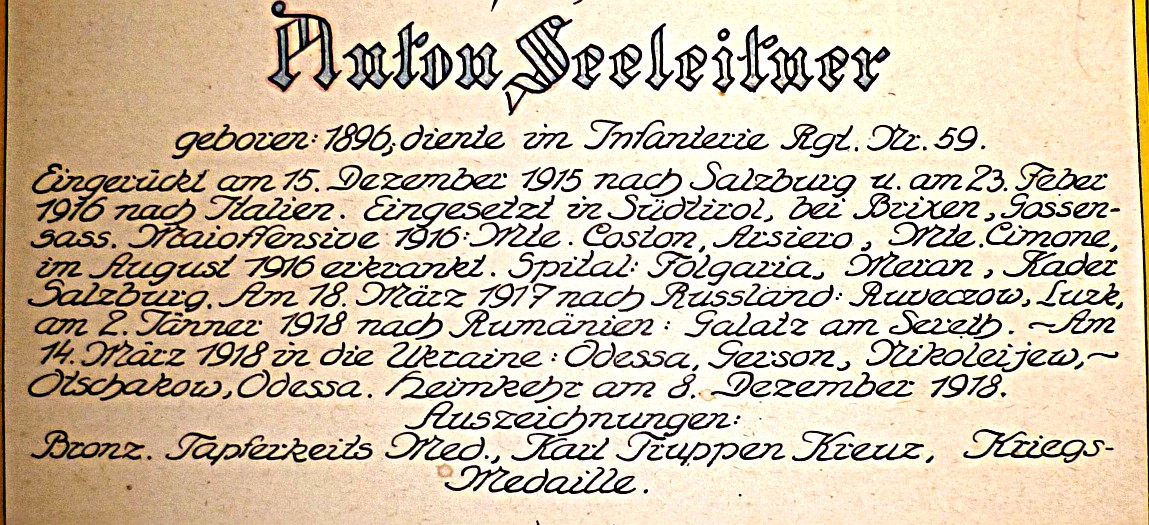 Anton Seeleitner
geboren: 1896, diente im Infanterie Rgt. Nr. 59.
Eingerückt am 15. Dezember 1915 nach Salzburg u. am 23. Feber
1916 nach Italien. Eingesetzt in Südtirol, bei Brixen, Gossen-
sass. Maioffensive 1916: Mte. Coston, Arsiero, Mte. Cimone,
im August 1916 erkrankt. Spital: Folgaria, Meran, Kader
Salzburg. Am 18. März 1917 nach Russland: Ruveczow, Luzk,
am 2. Jänner 1918 nach Rumänien: Galatz am Sereth. ~ Am
14. März 1918 in die Ukraine: Odessa, Gerson, Nikoleijew, ~
Otschakow, Odessa. Heimkehr am 8. Dezember 1918.
Auszeichnungen:
Bronz. Tapferkeits Med., Karl Truppen Kreuz, Kriegs-
Medaille.